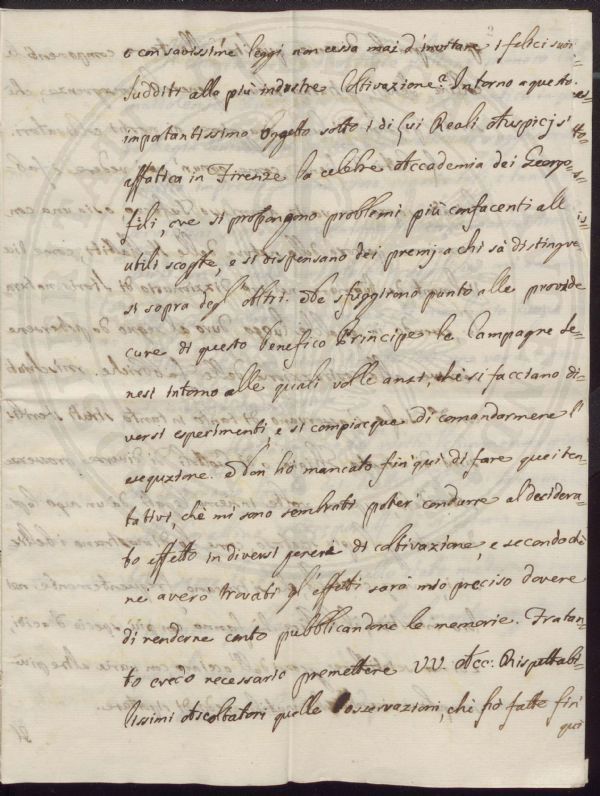 e con savissime leggi non cessa mai d'invitare i felici suoi
sudditi alla più industre Coltivazione. Intorno a questo
importantissimo Oggetto sotto i di lui Reali Auspicj s'
affatica in Firenze la celebre Accademia dei Georgo=
fili, ove si propongono problemi più confacenti all
utili scoperte, e si dispensano dei premj a chi sà distinguer=
si sopra degl'altri. Ne sfuggirono punto alle provide
cure di questo benefico Principe le Campagne Se=
nesi intorno alle quali volle anzi, che si facciano di=
versi esperimenti, e si compiacque di comandarmene l'
esequzione. Non hò mancato fin'qui di fare quei ten=
tativi, che mi sono sembrati poter condurre al'desidera=
to effetto in diversi generi di coltivazione, e secondo che
ne averò trovati gl'effetti sarà mio preciso dovere
di renderne conto pubblicandone le memorie. Fratan=
to creco necessario premettere VV. Acc. Rispettabi=
lissimi Ascoltatori quelle osservazioni, che hò fatte fin'
qui